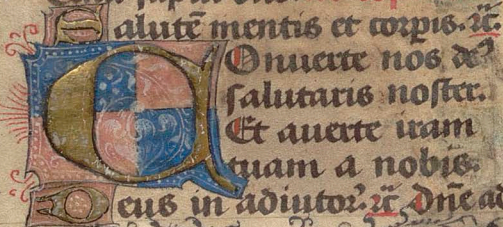 Salutē mentis et corpis. ꝛc̄
Conuerte nos deꝰ
salutaris noster.
Et auerte iram
tuam a nobis.
Deus in adiutor. ꝛc̄ Dn̄e ad